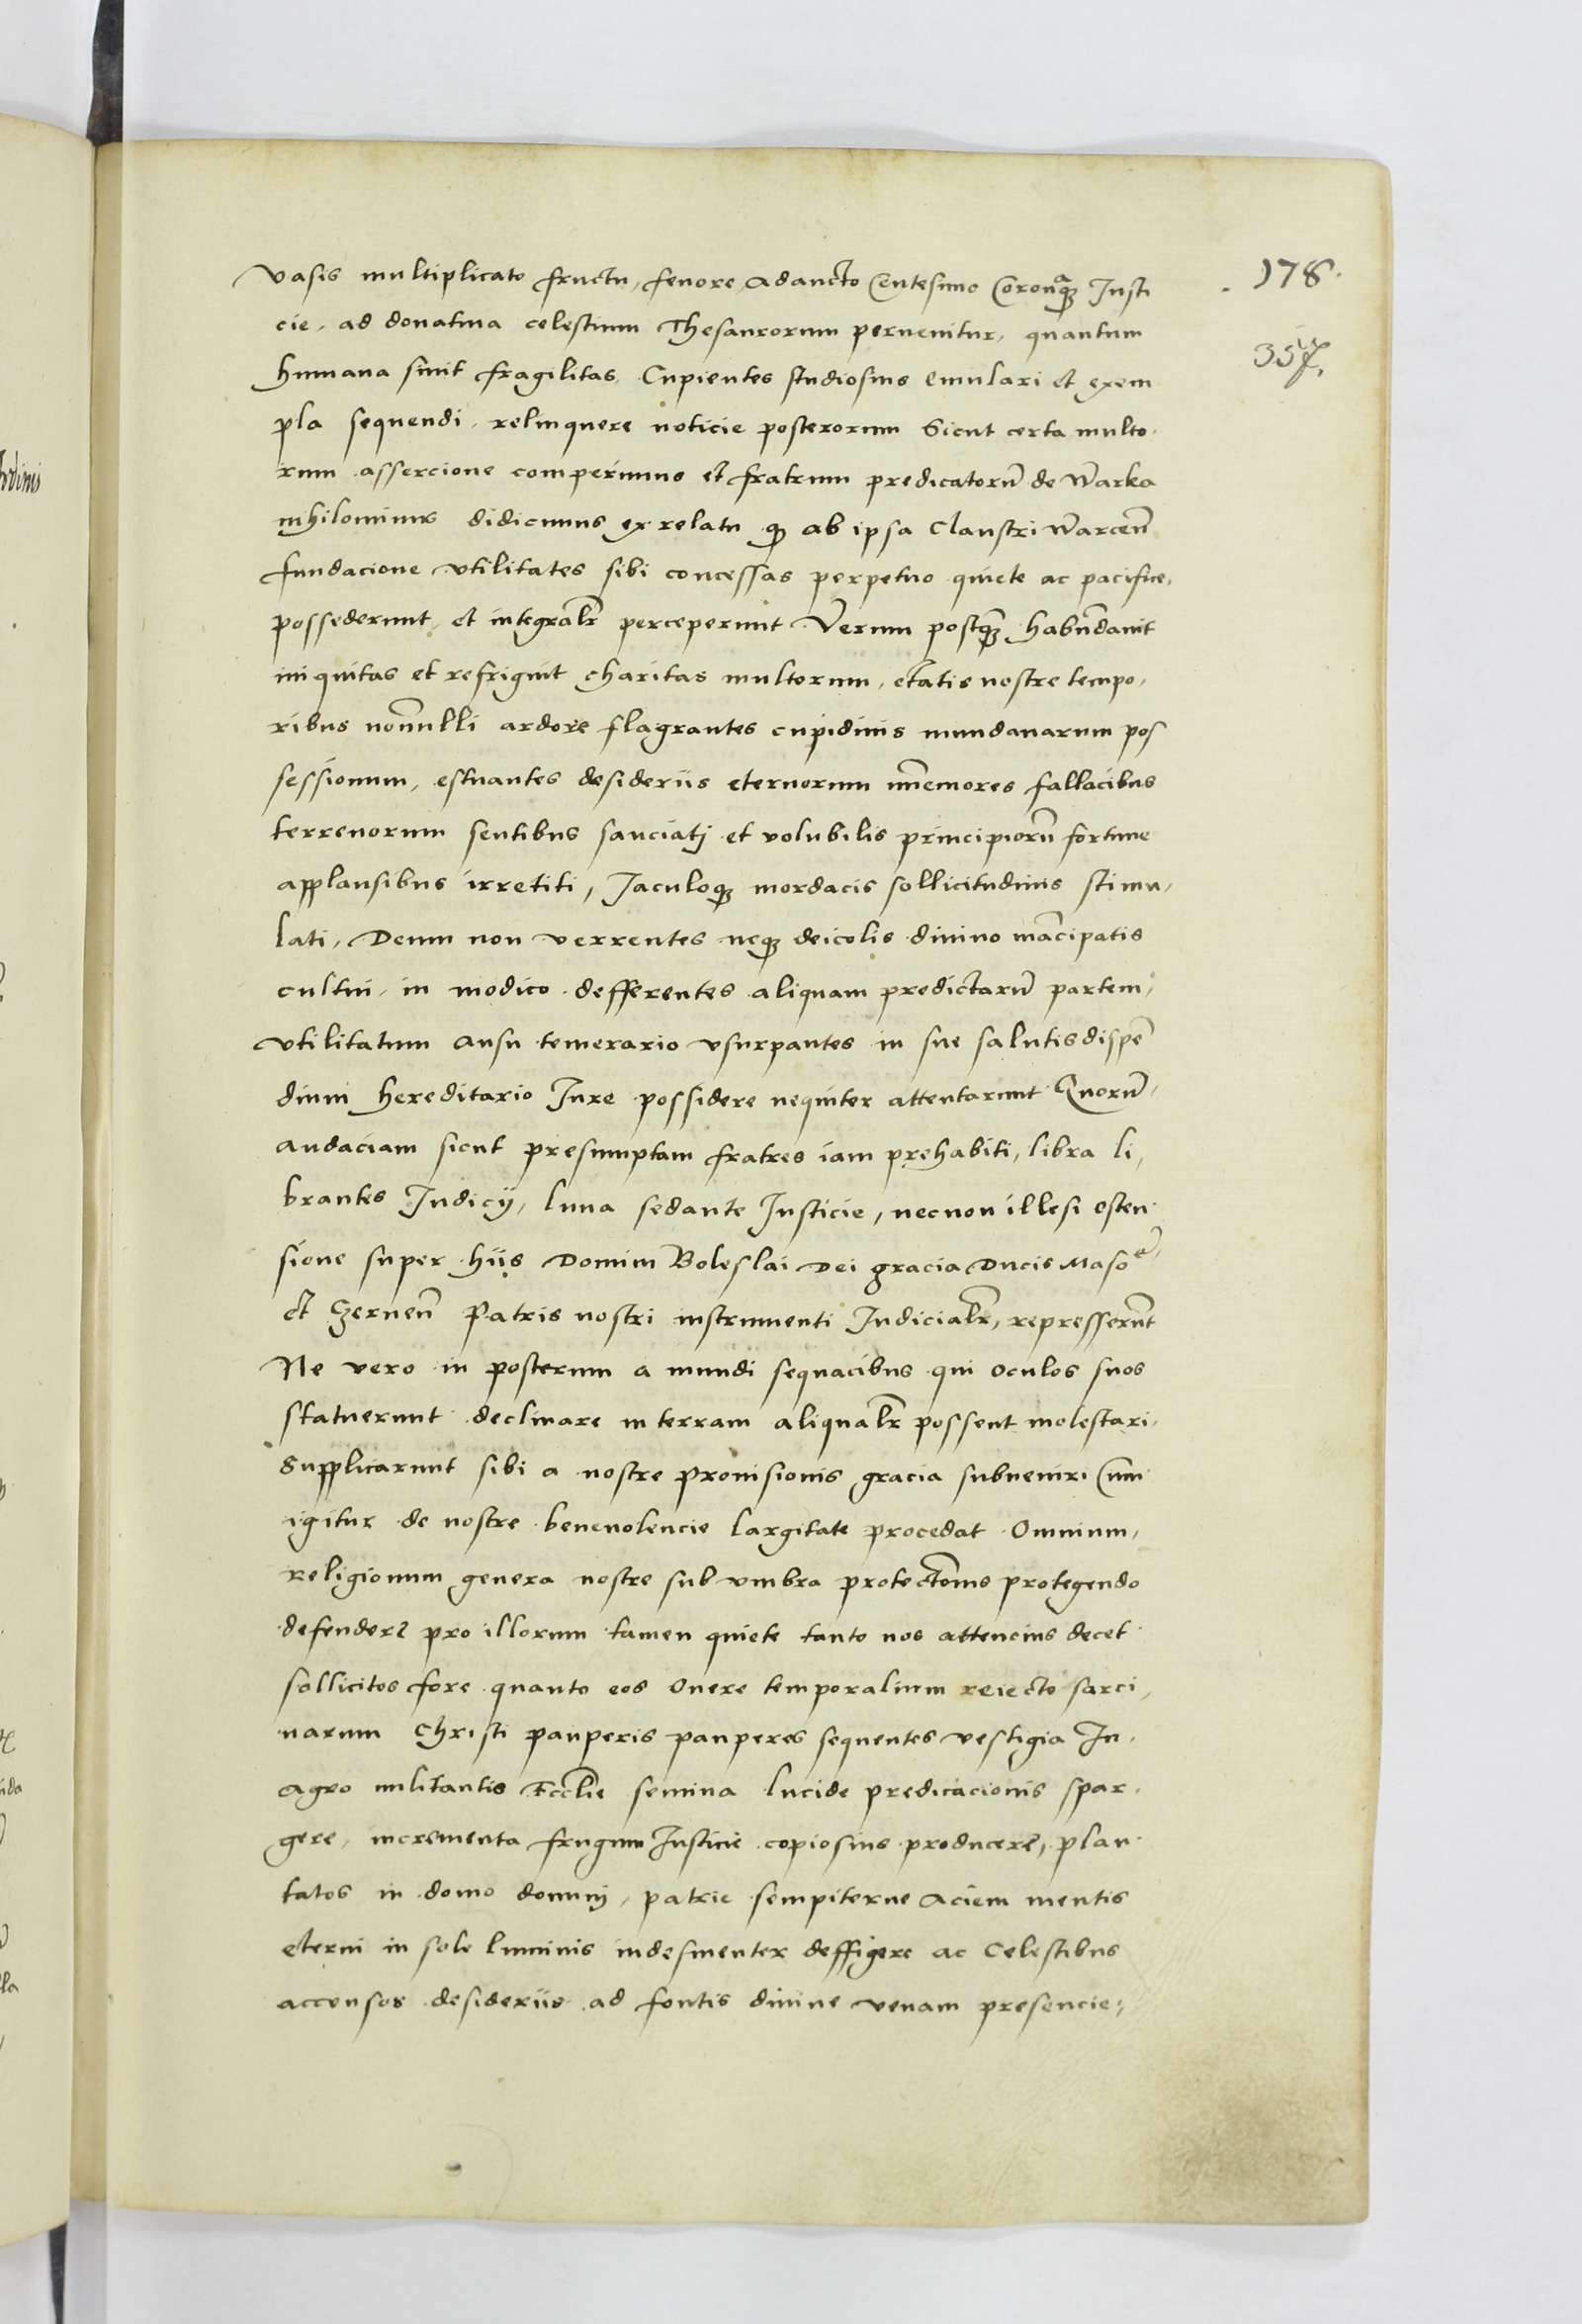 178.
357.
vasis multiplicato fructu, fenore, Adaucto Centesimo Coronaqꝫ Justi
cie, ad donativa celestium Thesaurorum pervenitur, quantum
humana sinit fragilitas. Cupientes studiosius emulari et exem
pla sequendi, relinquere noticie posterorum Sicut certa multo
rum assercione comperimus et fratrum predicatorū de Warka
nihilominus didicimus ex relatu qꝫ ab ipsa Claustri Warceñ
fundacione vtilitates sibi concessas perpetuo quiete ac pacifice,
possederunt, et integralr perceperunt Verum postqꝫ habundavit
iniquitas et refriguit charitas multorum, etatis nostre tempo,
ribus nonnulli ardore flagrantes cupidinis mundanarum pos
sessionum, estuantes desideriis eternorum immemores fallacibus
terrenorum sentibus sauciatj et volubilis principiorū fortune
applausibus irretiti, Jaculoqꝫ mordacis sollicitudinis stimu,
lati, Deum non verrentes neqꝫ deicolis divino mācipatis
cultui, in modico defferentes aliquam predictarū partem,
vtilitatum ausu temerario vsurpantes in sue salutis dispē
dium hereditario Jure possidere nequiter attentarunt Quorū,
audaciam sicut presumptam fratres iam prehabiti, libra li,
brantes Judicij, luna sedante Justicie, necnon illesi osten
sione super hiis Domini Boleslai Dei gracia Ducis Masoe
et Czerneñ Patris nostri instrumenti Judicialr, represserūt
Ne vero in posterum a mundi sequacibus qui oculos suos
statuerunt declinare in terram aliqualr possent molestari,
Supplicarunt sibi a nostre provisionis gracia subveniri Cum
igitur de nostre benevolencie largitate procedat Omnium,
religionum genera nostre sub vmbra protectionis protegendo
defendere pro illorum tamen quiete tanto nos attencius decet
sollicitos fore quanto eos Onere temporalium reiecto sarci,
narum Christi pauperis pauperes sequentes vestigia In
agro militantis Ecclie semina lucide predicacionis spar
gere, incrementa frugum Justicie copiosius producere, plan
tatos in domo dominj, patrie sempiterne Aciem mentis
eterni in sole luminis indesinenter deffigere ac Celestibus
accensos desideriis ad fontis divine venam presencie,